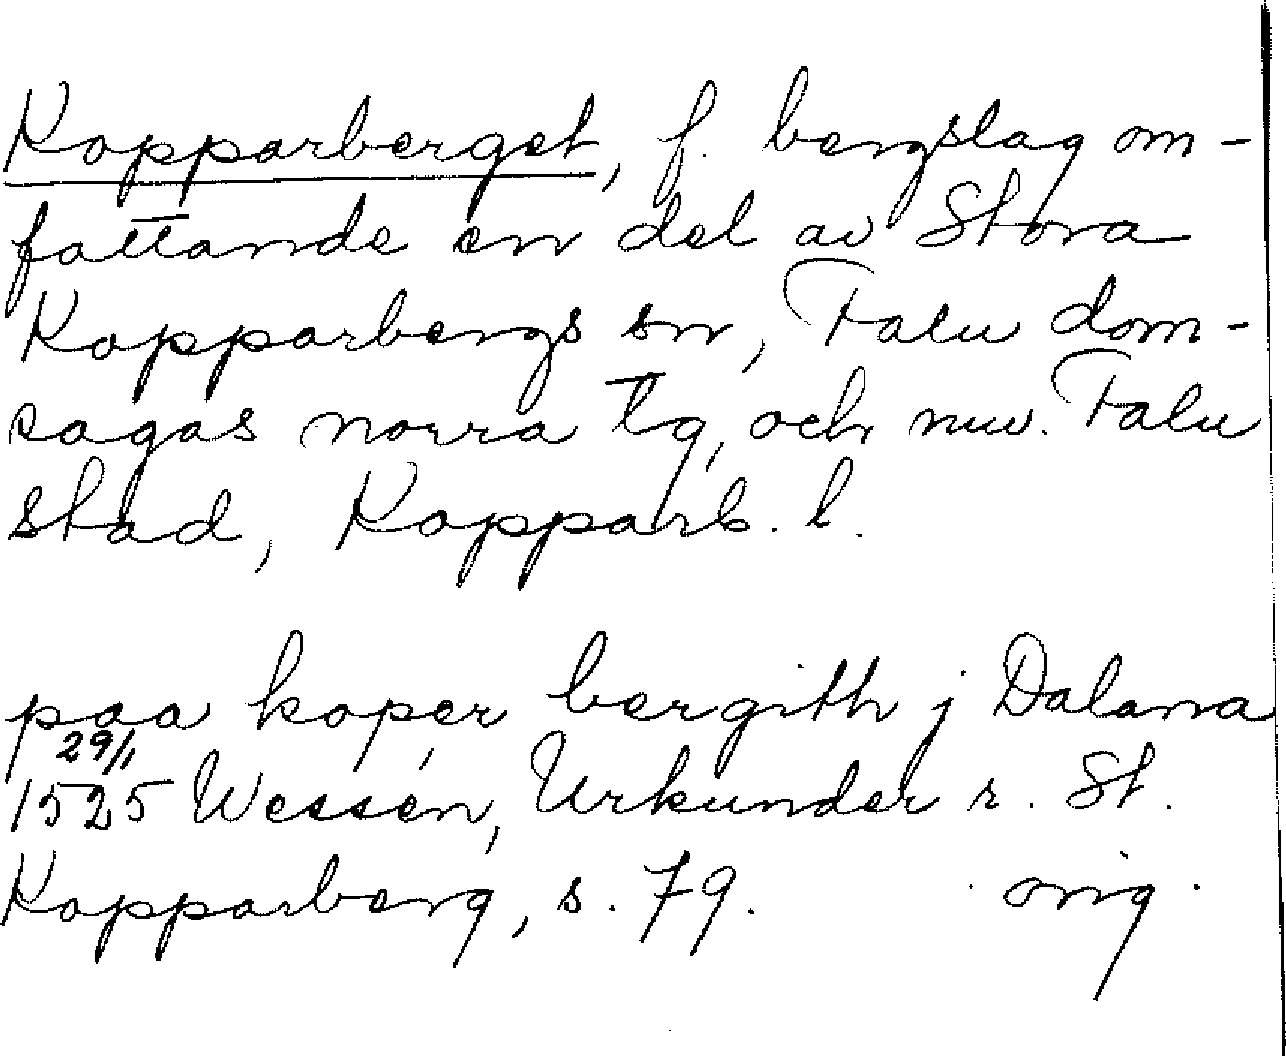 Kopparberget, f. bergslag om-
fattande en del av Stora
Kopparbergs sn, Falu dom-
sagas norra tg, och nuv. Falu
stad, Kopparb. l.
paa koper bergith j Dalana
29/1
1525 Wessén, Urkunder r. St.
Kopparberg, s. 79. orig.